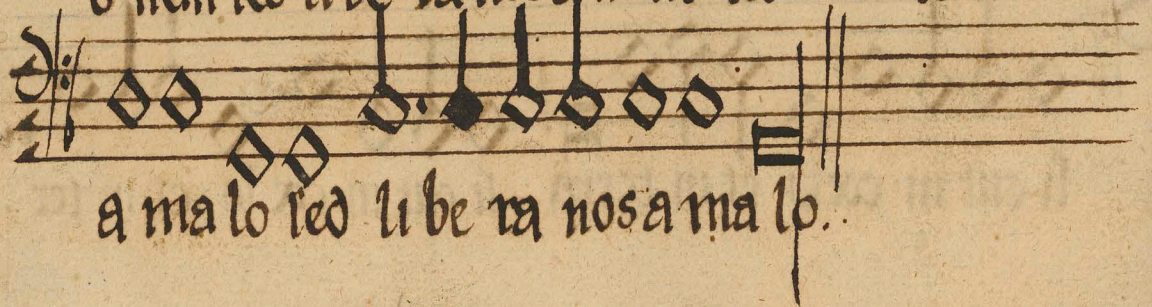 a ma lo sed li be ra nos a ma lo.